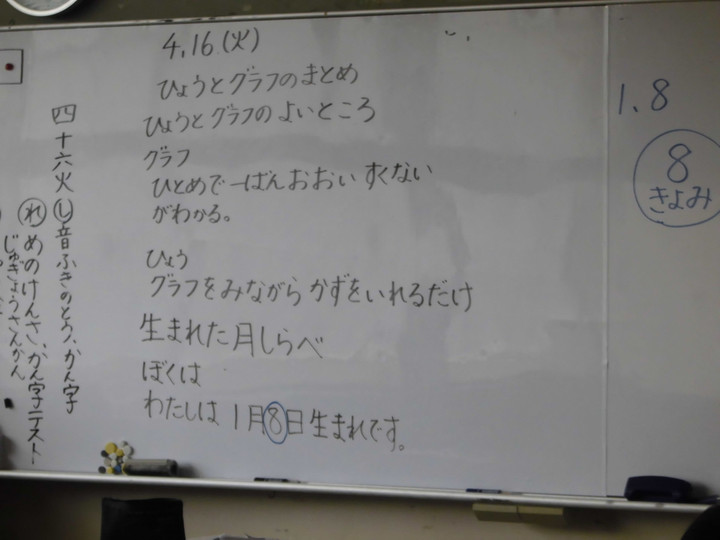 4.16(火)
ひょうとグラフのまとめ
ひょうとグラフのよいところ
グラフ
ひとめで一ばんおおい すくない
がわかる。
ひょう
グラフをみながらかずをいれるだけ
生まれた月しらべ
ぼくは
わたしは 1月8日生まれです。
1.8
8
きよみ
四十六火
し 音 ふきのとう、かん字
れ めのけんさ、かん字テスト
じゅぎょうさんかん